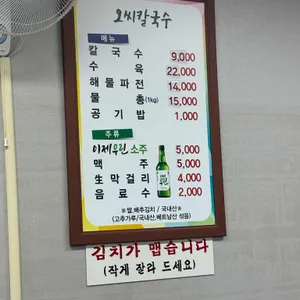 오씨칼국수
메뉴
칼국수 9,000
수육 22,000
해물파전 14,000
물총(1kg) 15,000
공기밥 1,000
주류
이제우린 소주 5,000
맥주 5,000
생막걸리 4,000
음료수 2,000
※쌀,배추김치 / 국내산※
(고추가루/국내산,베트남산 섞음)
김치가 맵습니다
(작게 잘라 드세요)